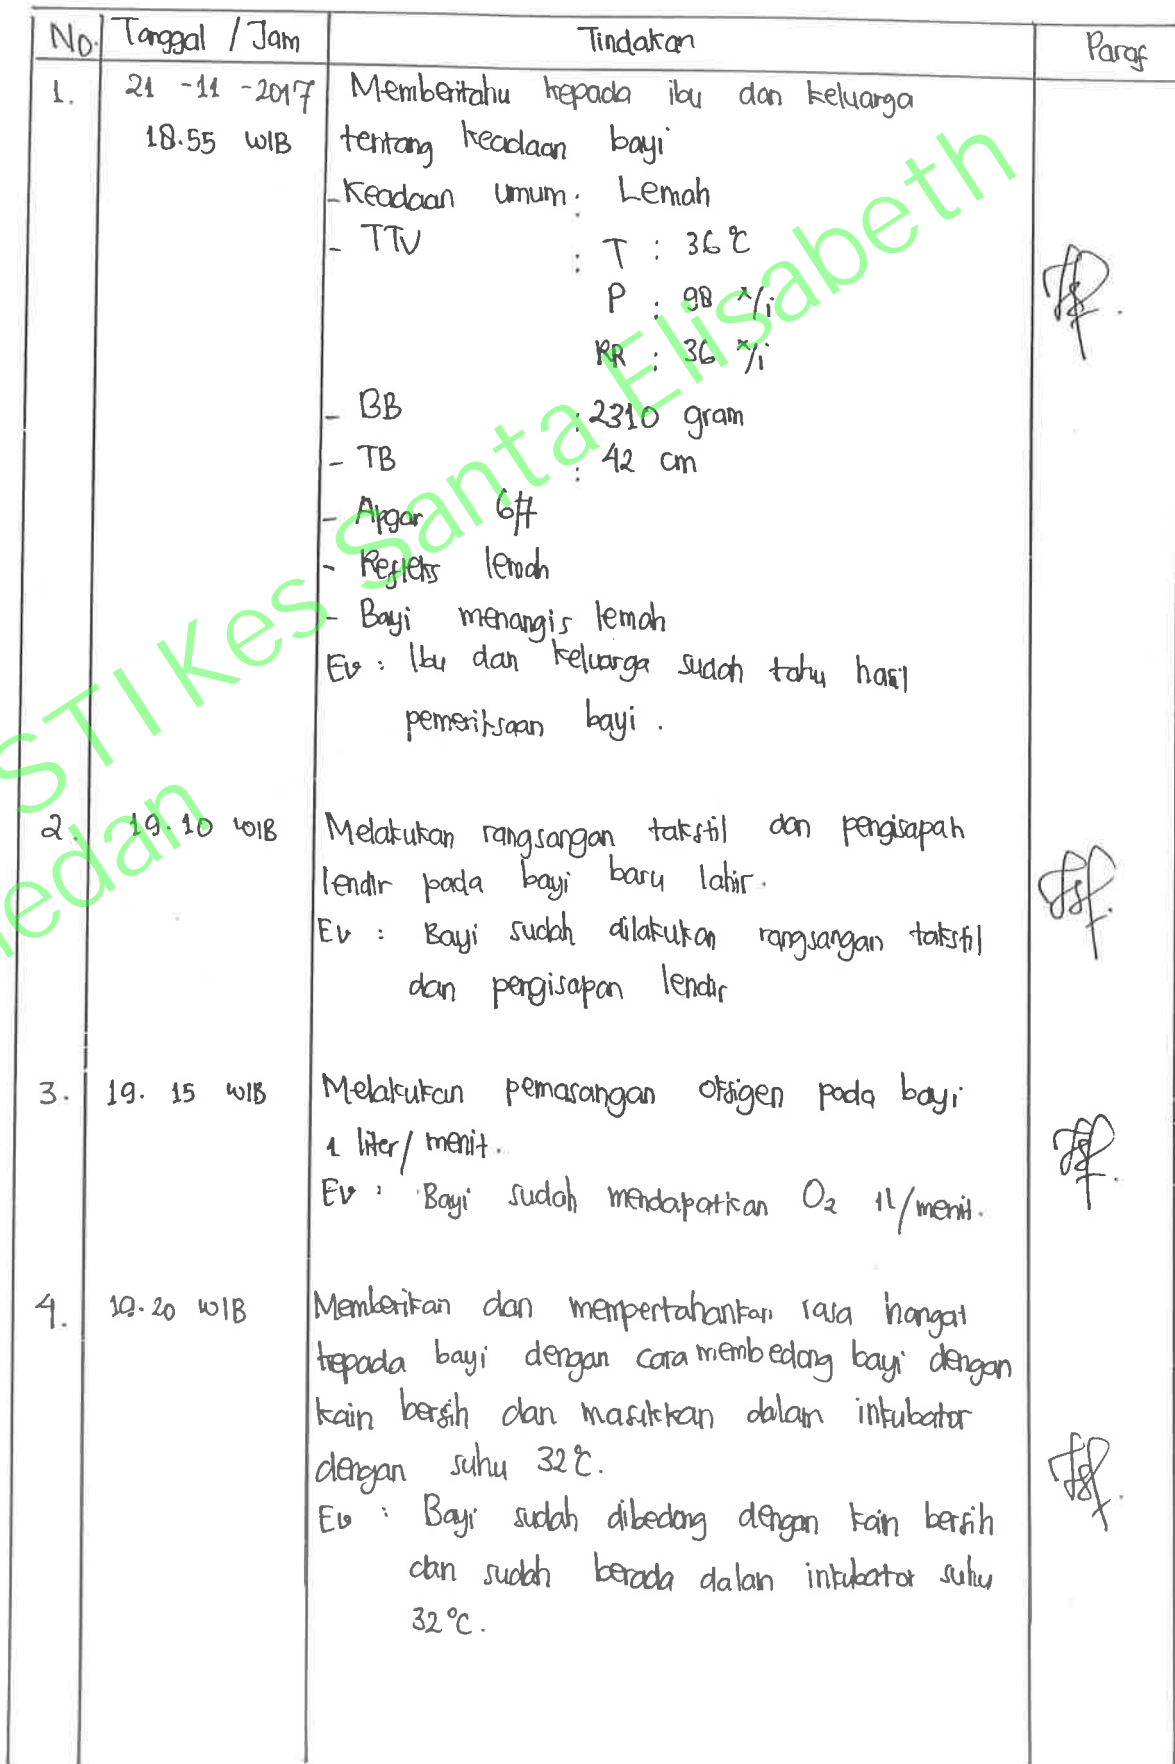 No. Tanggal / Jam Tindakan Paraf
1. 21 -11 -2017 Memberitahu kepada ibu dan keluarga
18.55 WIB tentang keadaan bayi
- Keadaan umum : Lemah
- TTV : T : 36 °C
P : 98 x/i
RR : 36 x/i
- BB : 2310 gram
- TB : 42 cm
- Apgar
- Refleks lemah
- Bayi menangis lemah
Ev : Ibu dan keluarga sudah tahu hasil
pemeriksaan bayi .
2. 19.10 WIB Melakukan rangsangan takstil dan pengisapan
lendir pada bayi baru lahir.
Ev : Bayi sudah dilakukan rangsangan takstil
dan pengisapan lendir
3. 19. 15 WIB Melakukan pemasangan oksigen pada bayi
1 liter/ menit.
Ev : Bayi sudah mendapatkan O2 1l/menit.
4. 19.20 WIB Memberikan dan mempertahankan rasa hangat
kepada bayi dengan cara membedong bayi dengan
kain bersih dan masukkan dalam inkubator
dengan suhu 32 °C.
Ev : Bayi sudah dibedong dengan kain bersih
dan sudah berada dalan inkubator suhu
32 °C.
STIKes Santa Elisabeth
edan